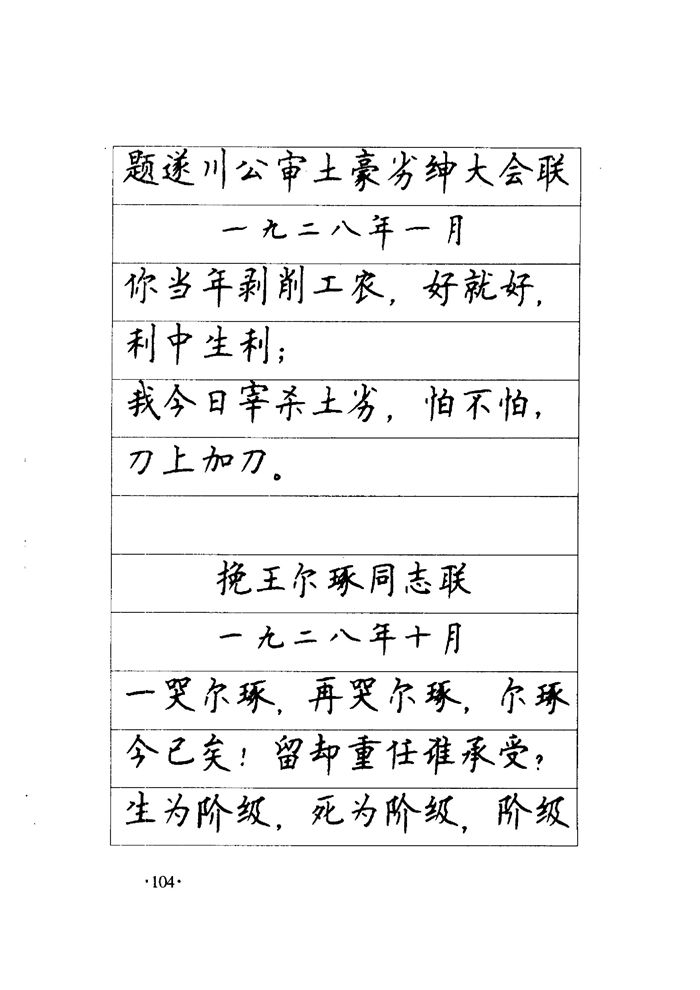 题遂川公审土豪劣绅大会联
一九二八年一月
你当年剥削工农，好就好，
利中生利；
我今日宰杀土劣，怕不怕，
刀上加刀。
挽王尔琢同志联
一九二八年十月
一哭尔琢，再哭尔琢，尔琢
今已矣！留却重任谁承受？
生为阶级，死为阶级，阶级
·104·